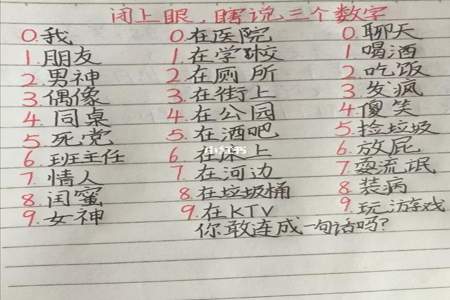 闭上眼，瞎说三个数字
0.我 0.在医院 0.聊天
1.朋友 1.在学校 1.喝酒
2.男神 2.在厕所 2.吃饭
3.偶像 3.在街上 3.发疯
4.同桌 4.在公园 4.傻笑
5.死党 5.在酒吧 5.捡垃圾
6.班主任 6.在床上 6.放屁
7.情人 7.在河边 7.耍流氓
8.闺蜜 8.在垃圾桶 8.装病
9.女神 9.在KTV 9.玩游戏
你敢连成一句话吗?